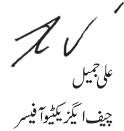 علی جمیل
چیف ایگزیکٹیو آفیسر